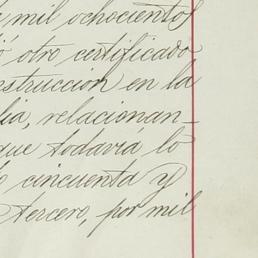 mil ochocientos
otro certificado
strucción en la
lia, relacionan-
que todavía lo
cincuenta y
tercero, por mil